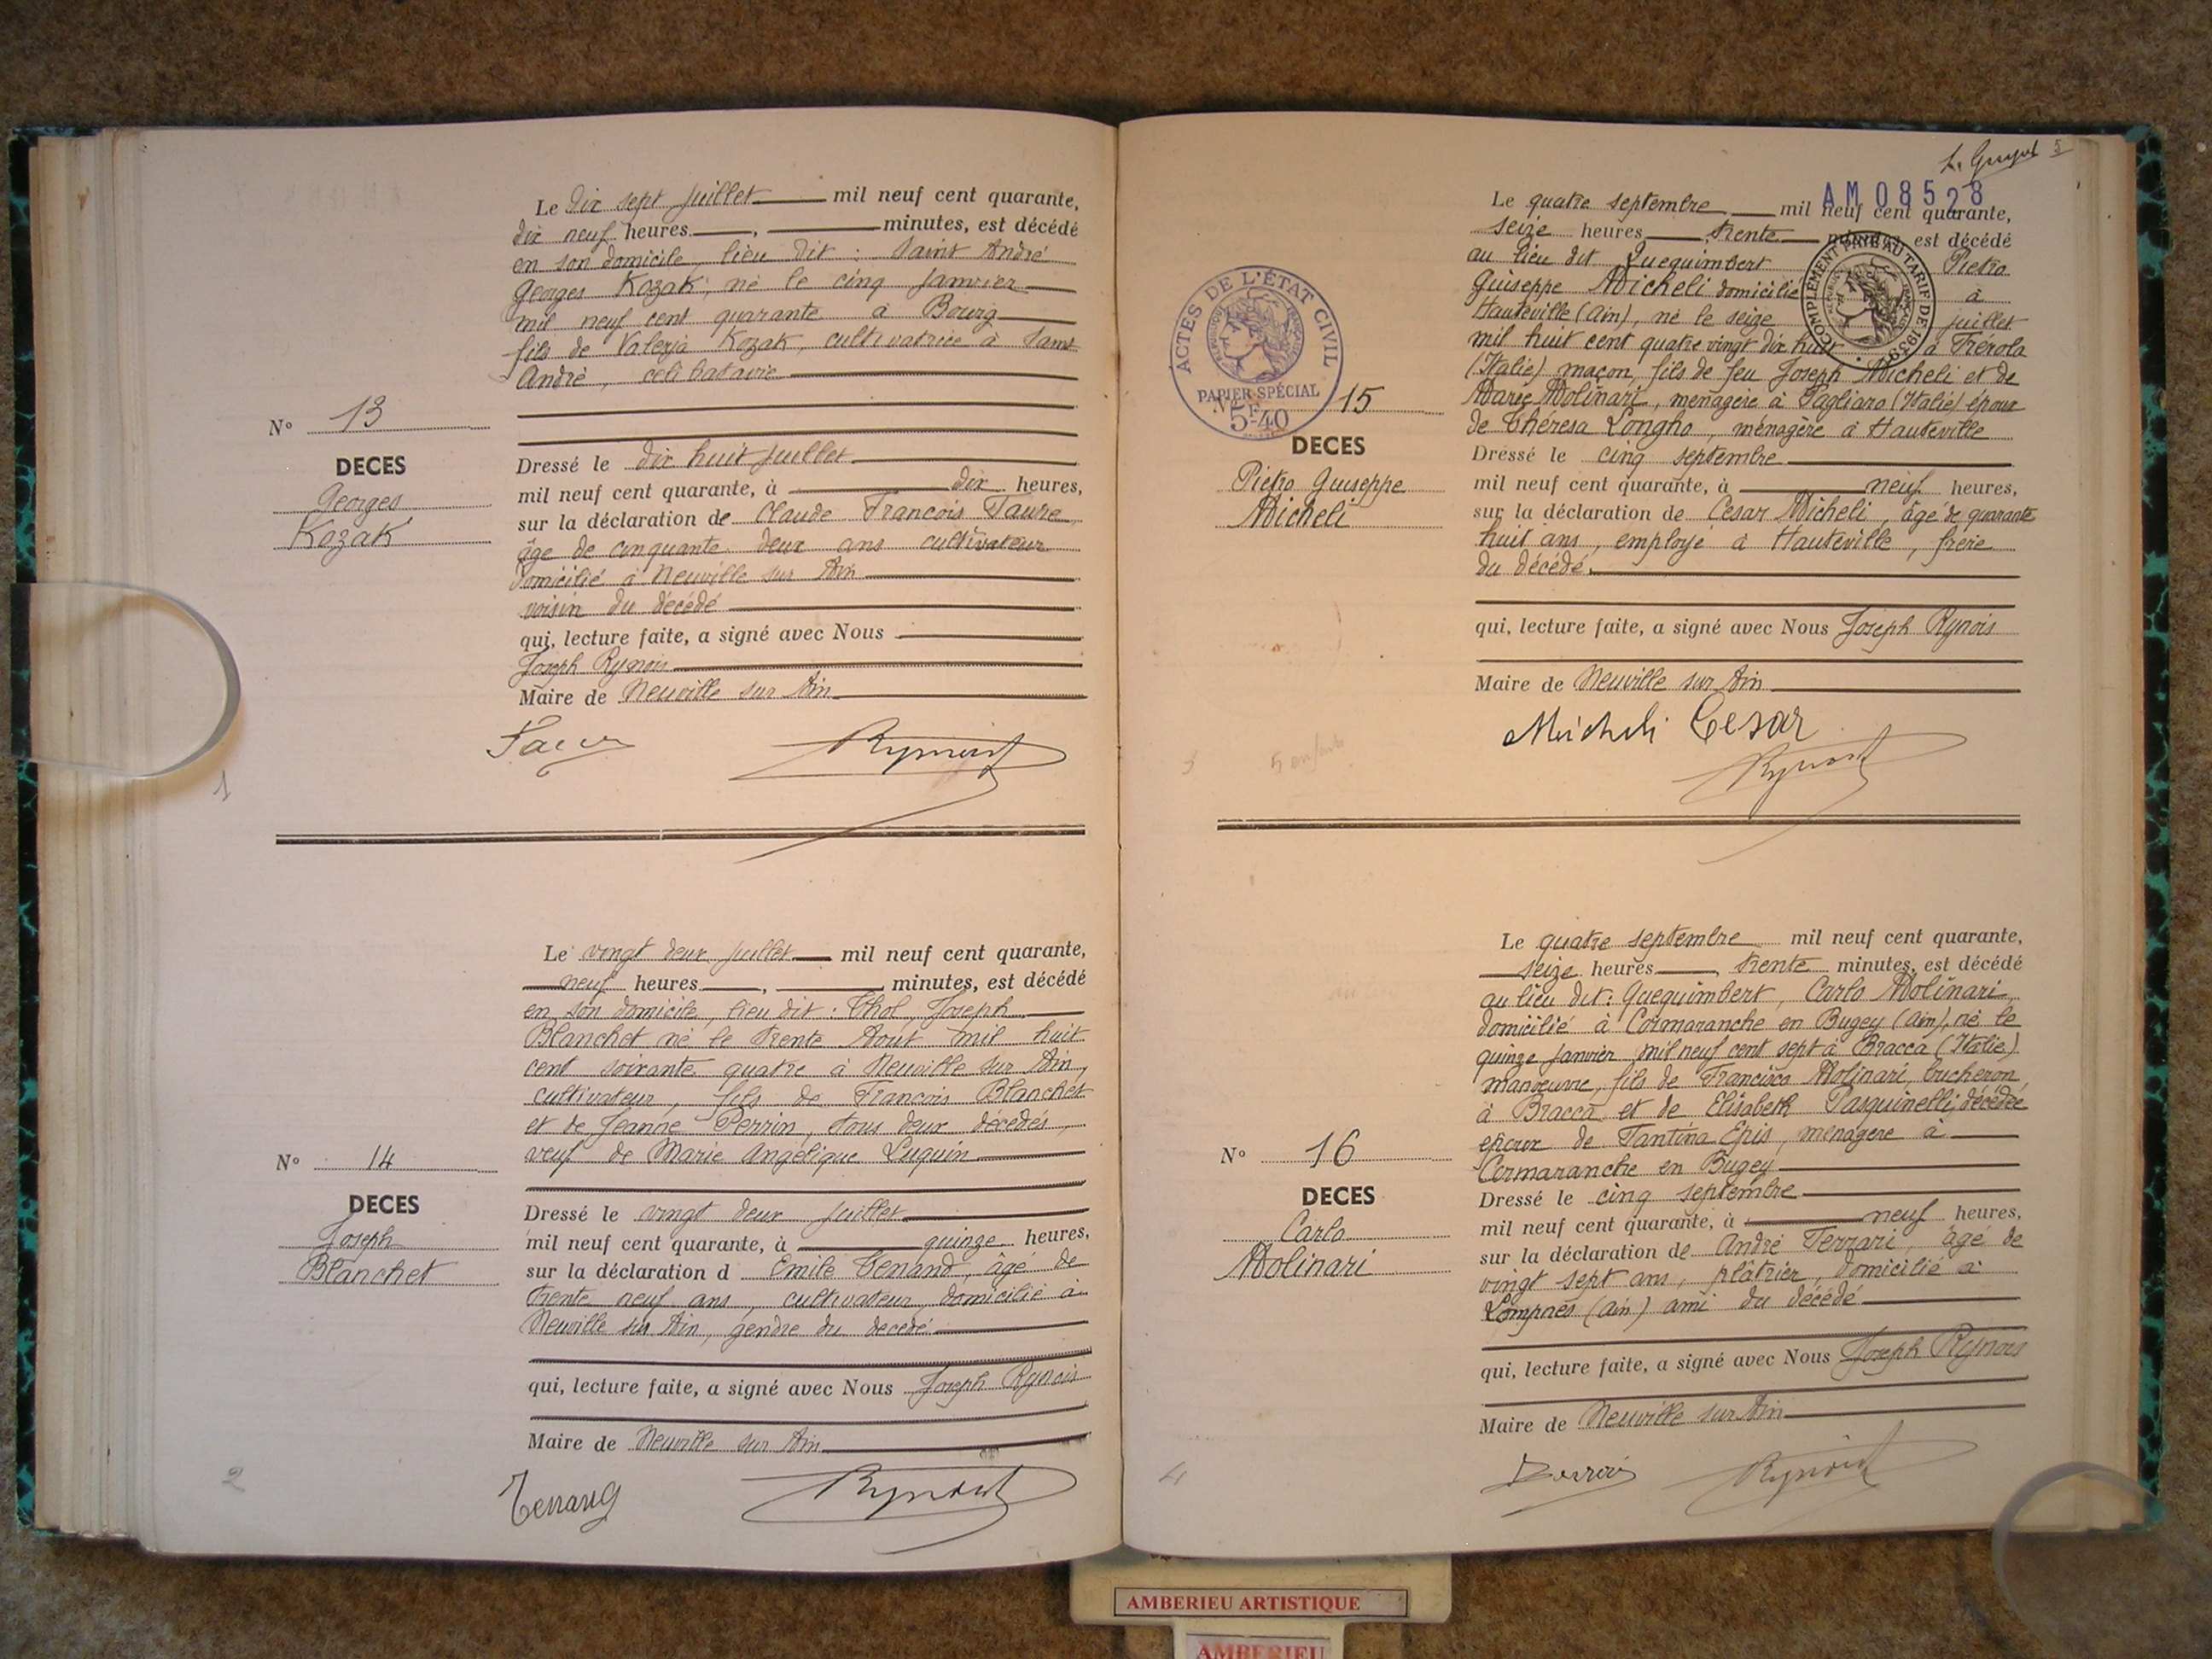 Le dix sept juillet mil neuf cent quarante,
dix neuf heures , minutes, est décédé
en son domicile, lieu dit : Saint André
Georges Kozak, né le cinq janvier
mil neuf cent quarante à Bourg
fils de Valerja Kozak, cultivatrice à Saint
André, célibataire
N° 13
DECES
Georges
Kozak
Dressé le dix huit juillet
mil neuf cent quarante, à dix heures,
sur la déclaration de Claude François Favre
âge de cinquante deux ans cultivateur
domicilié à Neuville sur Ain
voisin du décédé
qui, lecture faite, a signé avec Nous
Joseph Rynois
Maire de Neuville sur Ain
1
Le vingt deux juillet mil neuf cent quarante,
neuf heures , minutes, est décédé
en son domicile, lieu dit : Thol, Joseph
Blanchet né le trente Août mil huit
cent soixante quatre à Neuville sur Ain,
cultivateur, fils de François Blanchet
et de Jeanne Perrin, tous deux décédés,
veuf de Marie Angélique Luquin
N° 14
DECES
Joseph
Blanchet
Dressé le vingt deux juillet
mil neuf cent quarante, à quinze heures,
sur la déclaration d Emile Tenand, âgé de
trente neuf ans, cultivateur, domicilié à
Neuville sur Ain, gendre du decedé
qui, lecture faite, a signé avec Nous Joseph Rynois
Maire de Neuville sur Ain
2
5
AM 08528
Le quatre septembre mil neuf cent quarante,
seize heures trente est décédé
au lieu dit Quequimbert Pietro
Guiseppe Micheli domicilié à
Hauteville (Ain), né le seize juillet
mil huit cent quatre vingt dix huit à Trerola
(Italie) maçon, fils de feu Joseph Micheli et de
Marie Molinari, ménagère à Pagliaro (Italie) époux
de Thérésa Longho, ménagère à Hauteville
COMPLÉMENT PAYÉ AU TARIF DE 1939
ACTES DE L'ÉTAT CIVIL
PAPIER SPÉCIAL
5F40
15
DECES
Pietro Guiseppe
Micheli
Dressé le cinq septembre
mil neuf cent quarante, à neuf heures,
sur la déclaration de Cesar Micheli, âgé de quarante
huit ans, employé à Hauteville, frère
du décédé.
qui, lecture faite, a signé avec Nous Joseph Rynois
Maire de Neuville sur Ain
Micheli Cesar
5 enfants
Le quatre septembre mil neuf cent quarante,
seize heures , trente minutes, est décédé
au lieu dit: Quequimbert, Carlo Molinari,
domicilié à Cormaranche en Bugey (Ain), né le
quinze janvier mil neuf cent sept à Bracca (Italie)
manœuvre, fils de Francisco Molinari, bucheron
à Bracca et de Elisabeth Pasquinelli, décédée
époux de Tantina Epis, ménagère à
Cormaranche en Bugey
N° 16
DECES
Carlo
Molinari
Dressé le cinq septembre
mil neuf cent quarante, à neuf heures,
sur la déclaration de André Ferrari, âgé de
vingt sept ans, plâtrier, domicilié à
Lompnes (Ain) ami du décédé
qui, lecture faite, a signé avec Nous Joseph Rynois
Maire de Neuville sur Ain
4
AMBERIEU ARTISTIQUE
AMBERIEU